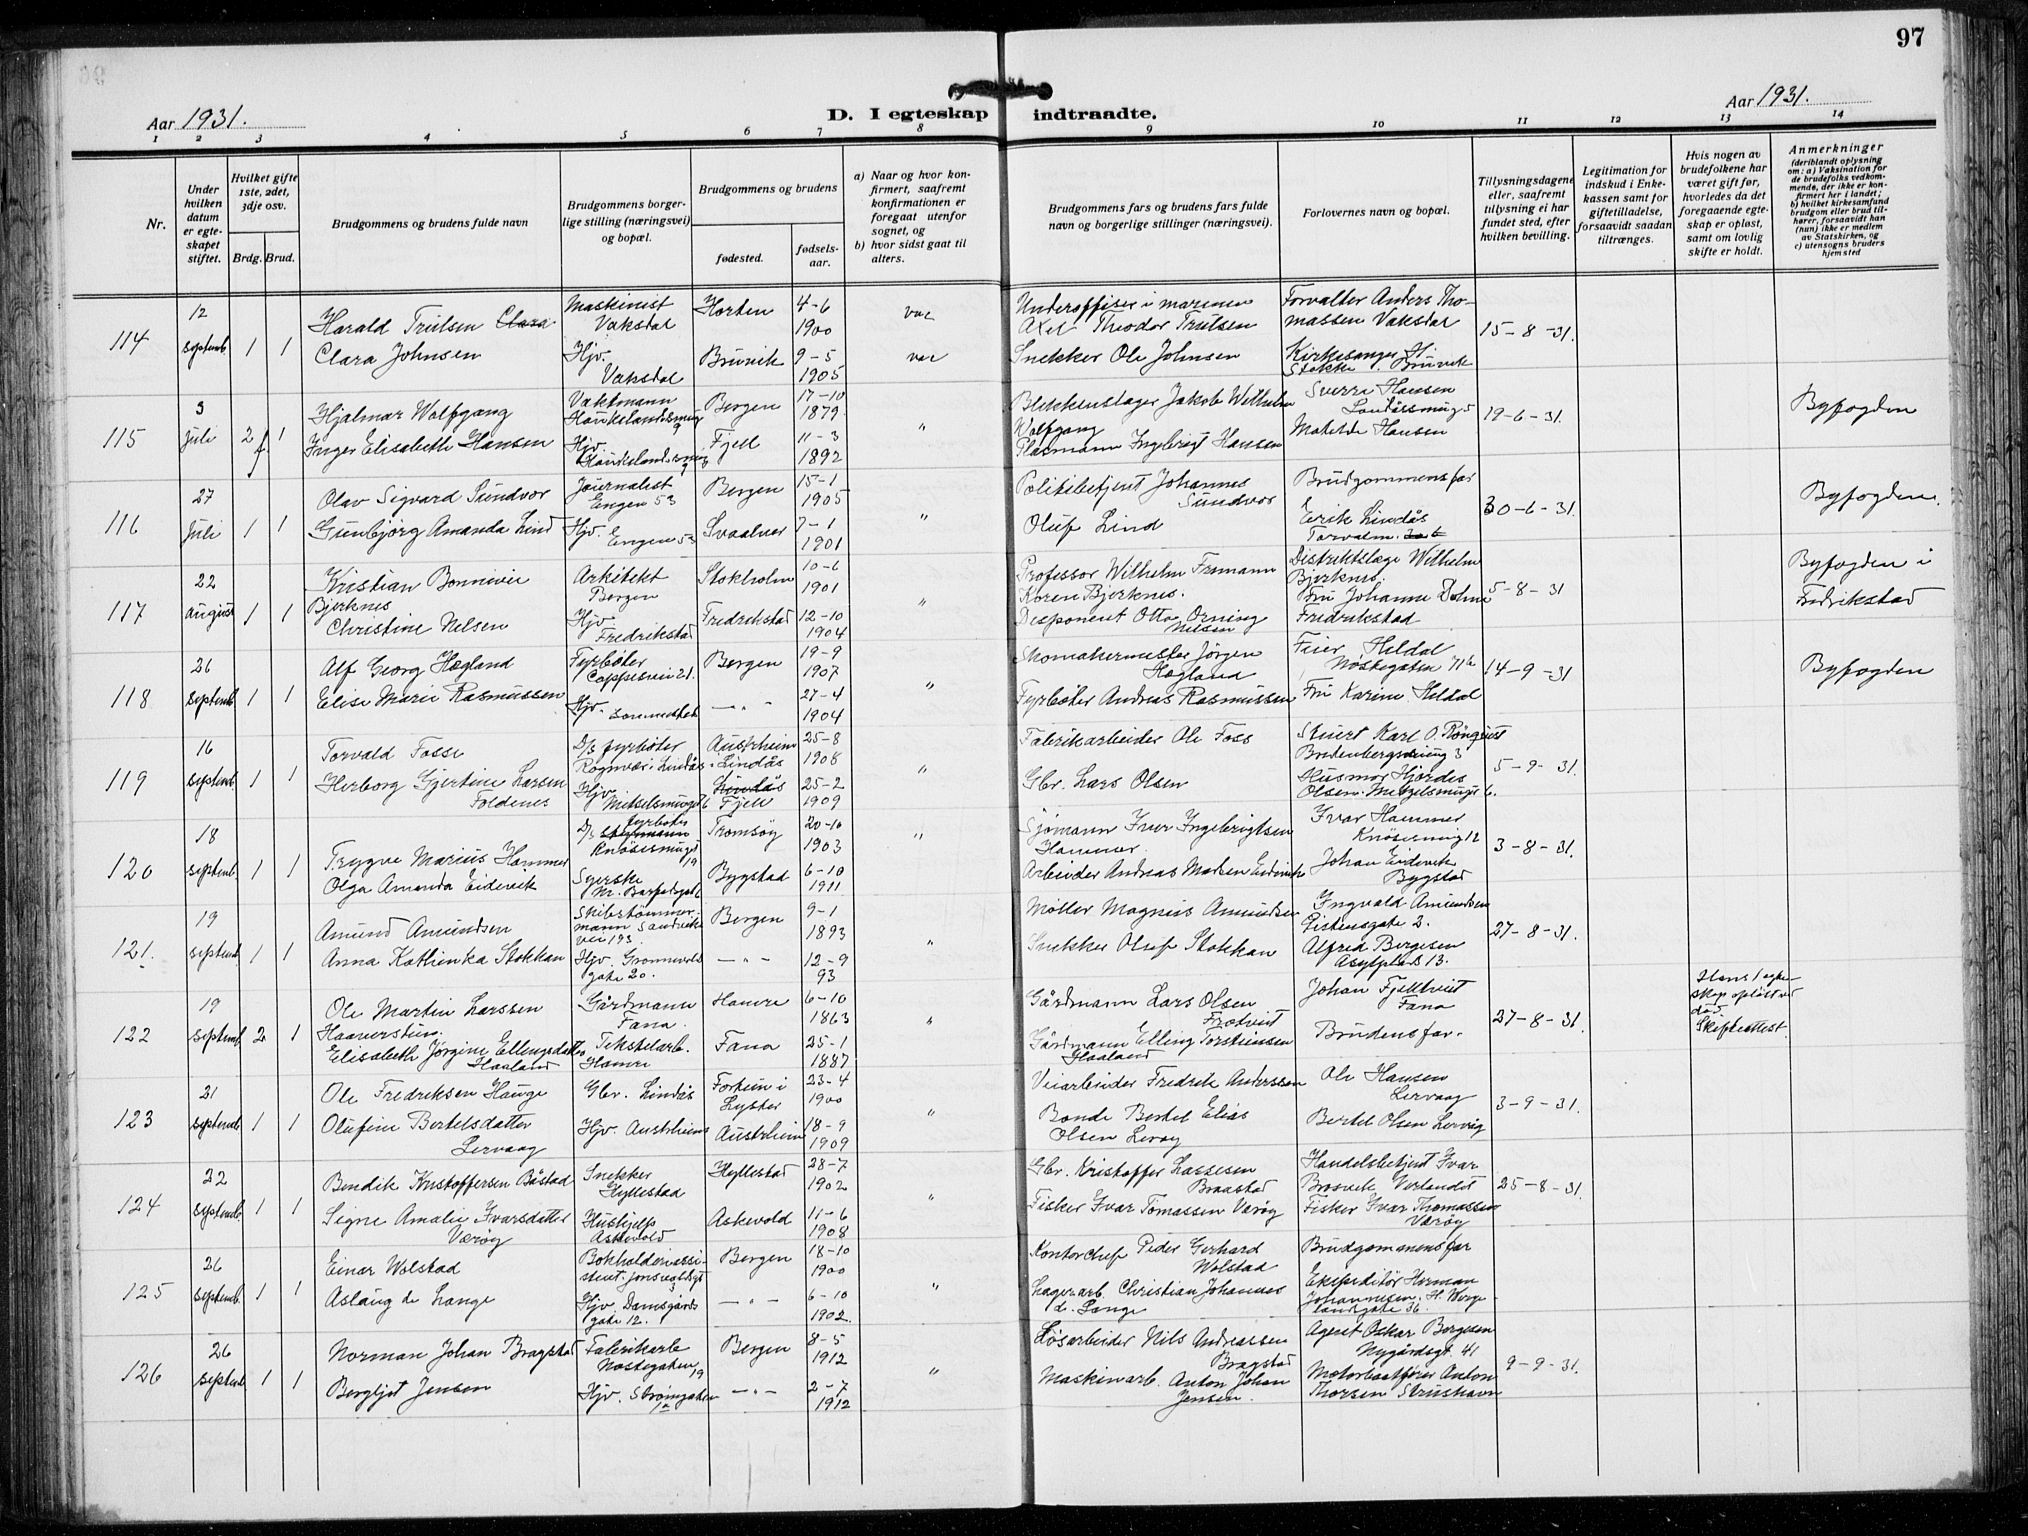 97
Aar 1931.
D. I egteskap indtraadte.
Aar 1931.
1 2 3 4 5 6 7 8 9 10 11 12 13 14
Nr.
Under hvilken datum er egte-skapet stiftet.
Hvilket gifte 1ste, 2det, 3dje osv.
Brdg. Brud.
Brudgommens og brudens fulde navn
Brudgommens borger-lige stilling (næringsvei) og bopæl.
Brudgommens og brudens
fødested.
fødsels-aar.
a) Naar og hvor kon-firmert, saafremt konfirmationen er foregaat utenfor sognet, og
b) hvor sidst gaat til alters.
Brudgommens fars og brudens fars fulde navn og borgerlige stillinger (næringsvei).
Forlovernes navn og bopæl.
Tillysningsdagene eller, saafremt tillysning ei har fundet sted, efter hvilken bevilling.
Legitimation for indskud i Enke-kassen samt for giftetilladelse, forsaavidt saadan tiltrænges.
Hvis nogen av brudefolkene har været gift før, hvorledes da det foregaaende egte-skap er opløst, samt om lovlig skifte er holdt.
Anmerkninger
(deriblandt oplysning om: a) Vaksination for de brudefolks vedkom-mende, der ikke er kon-firmert her i landet; b) hvilket kirkesamfund brudgom eller brud til-hører, forsaavidt han (hun) ikke er medlem av Statskirken, og c) utensogns bruders hjemsted
114 12 septemb 1 1
Harald Trulsen Clara Maskinist Vaksdal Horten 4-6 1900 vac Underoffiser i marinen Axel Theodor Trulsen Forvalter Anders Thomassen Vaksdal 15-8-31.
Clara Johnsen Hjv. Vaksdal Bruvik 9-5 1905 vac Snekker Ole Johnsen Kirkesanger H. Stokke. Bruvik
115 3 Juli 2 f. 1
Hjalmar Wolfgang Vaktmann Haukelandsmug Bergen 17-10 1879 " Blikkenslager Jakob Wilhelm Wolfgang Sverre Hansen 19-6-31. Byfogden
Inger Elisabeth Hansen Hjv. Haukelandsmug Fjell 11-3 1892 Ingebrigt Hansen Matilde Hansen
116 27 Juli 1 1
Olav Sigvard Sundvor Journalist Engen 53 Bergen 15-1 1905 " Politibetjent Johannes Sundvor Brudgommens far 30-6-31. Byfogden.
Gunbjørg Amanda Lind Hjv. Engen 53 Svolvær 7-1 1901 Oluf Lind Erik Lindås
117 22 august 1 1
Kristian Bonnevie Bjerknes Arkitekt Bergen Stokholm 10-6 1901 " Professor Wilhelm Frimann Koren Bjerknes. Distriktslæge Wilhelm Bjerknes. 5-8-31 Byfogden i Fredrikstad
Christine Nelsen Hjv Fredrikstad Fredrikstad 12-10 1904 Disponent Otto Orning Nelsen Fru Johanne Dahm Fredrikstad
118 26 septemb 1 1
Alf Georg Hægland Fyrbøter Cappesvei 21. Bergen 19-9 1907 " Skomakermester Jørgen Hægland Feier Hildal Nøstegaten 71b 14-9-31 Byfogden
Elise Marie Rasmussen Hjv. — " — 27-4 1904 Fyrbøter Andreas Rasmussen Fru Karine Hildal
119 16 septemb. 1 1
Torvald Fosse D/s fyrbøter Rognvær i Lindås Austrheim i Lindås 25-8 1908 " Fabrikarbeider Ole Foss Stuert Karl O. Rönquist 5-9-31.
Herborg Gjertine Larsen Foldenes Hjv. Fjell 25-2 1909 Gbr. Lars Olsen Husmor Hjørdes Olsen.
120 18 septemb. 1 1
Trygve Marius Hammer D/s fyrbøter Knøsesmuget 19 Tromsøy 20-10 1903 " Sjømann Iver Ingebrigtsen Hammer. Ivar Hammer Knøsesmug 12 3-8-31.
Olga Amanda Eidevik Syerske Bygstad 6-10 1911 Arbeider Andreas Madsen Eidevik Johan Eidevik Bygstad
121. 19 septemb 1 1
Amund Amundsen Skibstømmermann Sandviksvei 193 Bergen 9-1 1893 " Møller Magnus Amundsen Ingvald Amundsen 27-8-31.
Anna Kathinka Stokkan Hjv. Gronnevolds gate 20. — " — 12-9 93 Snekker Oluf Stokkan Alfred Bergesen Asylplads 13.
122 19 septemb. 2 1
Ole Martin Larssen Haaverstun. Gårdmann Fana. Hamre 6-10 1863 " Gårdmann Lars Olsen Johan Fjelltveit Fana 27-8-31. Hans 1 egteskap opløst ved død. Skifteattest
Elisabeth Jørgine Ellingsdatter Haaland Tekstilarb. Hamre Fana 25-1 1887 Gårdmann Elling Torsteinsen Haaland Brudens far.
123 21 septemb. 1 1
Ole Fredriksen Hauge Gbr. Lindås Fortun i Lyster 23-4 1900 " Veiarbeider Fredrik Anderssen Ole Hansen Lervaag 3-9-31.
Olufine Bertelsdatter Lervaag Hjv. Austrheim Austrheim 18-9 1909 Bonde Bertel Elias Olsen Bertel Olsen
124 22 septemb. 1 1
Bendik Kristoffersen Båstad Snekker Hyllestad Hyllestad 28-7 1902 " Gbr. Kristoffer Lassesen Handelsbetjent Ivar 25-8-31.
Signe Amalie Ivarsdatter Værøy Hushjelp Askevold Askevold 11-6 1908 Fisker Ivar Tomassen Værøy Fisker Ivar Thomassen Værøy
125 26 septemb. 1 1
Einar Wolstad Bokholderiassistent. Bergen 18-10 1900 " Kontorchef Peder Gerhard Wolstad Brudgommens far
Aslaug de Lange Hjv. Damsgårds gate 12. — " — 6-10 1902. Lagerarb. Christian Johannes d. Lange Ekspeditør Herman Johannesen. H. Wergelandsgate 36.
126 26 septemb 1 1
Norman Johan Bragstad Fabrikarb Nøstegaten 19 Bergen 8-5 1912 " Løsarbeider Nils Andreassen Bragstad Agent Oskar Bergesen Nygårdsgt. 41 9-9-31.
Bergljot Jensen Hjv. — " — 2-7 1912 Maskinarb. Anton Johan Jensen. Motorbaatfører Anton Thorsen